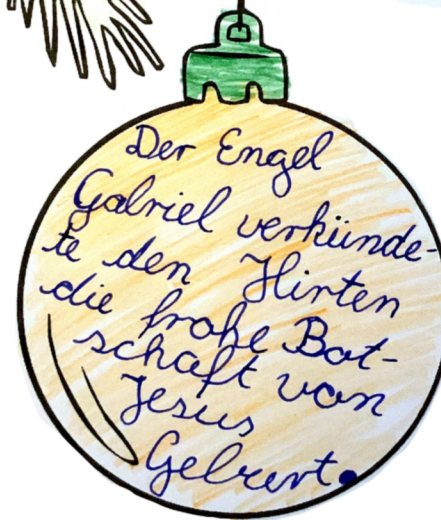 Der Engel
Gabriel verkünde-
te den Hirten
die frohe Bot-
schaft von
Jesus
Geburt.